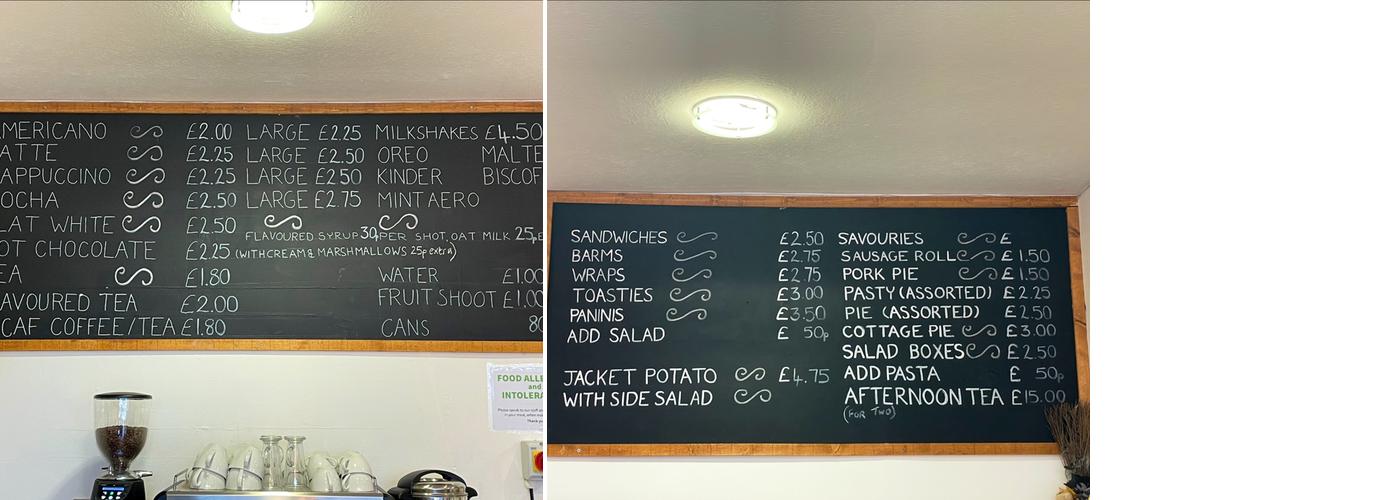 MERICANO £2.00 LARGE £2.25 MILKSHAKES £4.50
ATTE £2.25 LARGE £2.50 OREO MALTE
APPUCCINO £2.25 LARGE £2.50 KINDER BISCOF
OCHA £2.50 LARGE £2.75 MINT AERO
LAT WHITE £2.50
FLAVOURED SYRUP 30p PER SHOT, OAT MILK 25p E
OT CHOCOLATE £2.25 (WITH CREAM & MARSHMALLOWS 25p extra)
EA £1.80 WATER £1.00
AVOURED TEA £2.00 FRUIT SHOOT £1.00
CAF COFFEE/TEA £1.80 CANS 80
FOOD ALLE
and
INTOLERA
SANDWICHES £2.50
BARMS £2.75
WRAPS £2.75
TOASTIES £3.00
PANINIS £3.50
ADD SALAD £ 50p
JACKET POTATO £4.75
WITH SIDE SALAD
SAVOURIES £
SAUSAGE ROLL £1.50
PORK PIE £1.50
PASTY (ASSORTED) £2.25
PIE (ASSORTED) £2.50
COTTAGE PIE £3.00
SALAD BOXES £2.50
ADD PASTA £ 50p
AFTERNOON TEA £15.00
(FOR TWO)